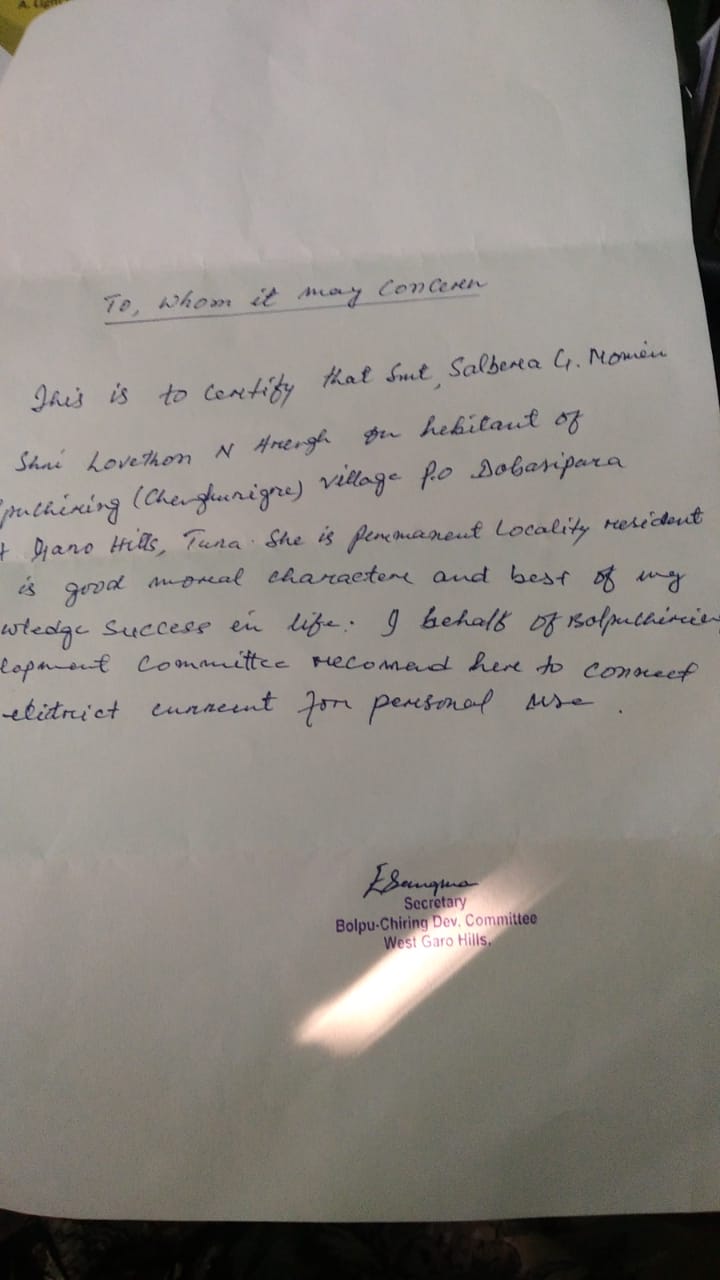 A. Light
To, whom it may concern
This is to certify that Smt, Salberea G. Momin
Shri Lovethon N Arengh an hebitant of
puchiring (Chenghunigre) village P.O Dobasipara
t Garo Hills, Tura. She is permanent Locality resident
is good moral character and best of my
wledge success in life. I behalf of Bolpuchirin
lopment Committee recomend here to connect
eletrict current for personal use.
ESangma
Secretary
Bolpu-Chiring Dev. Committee
West Garo Hills,